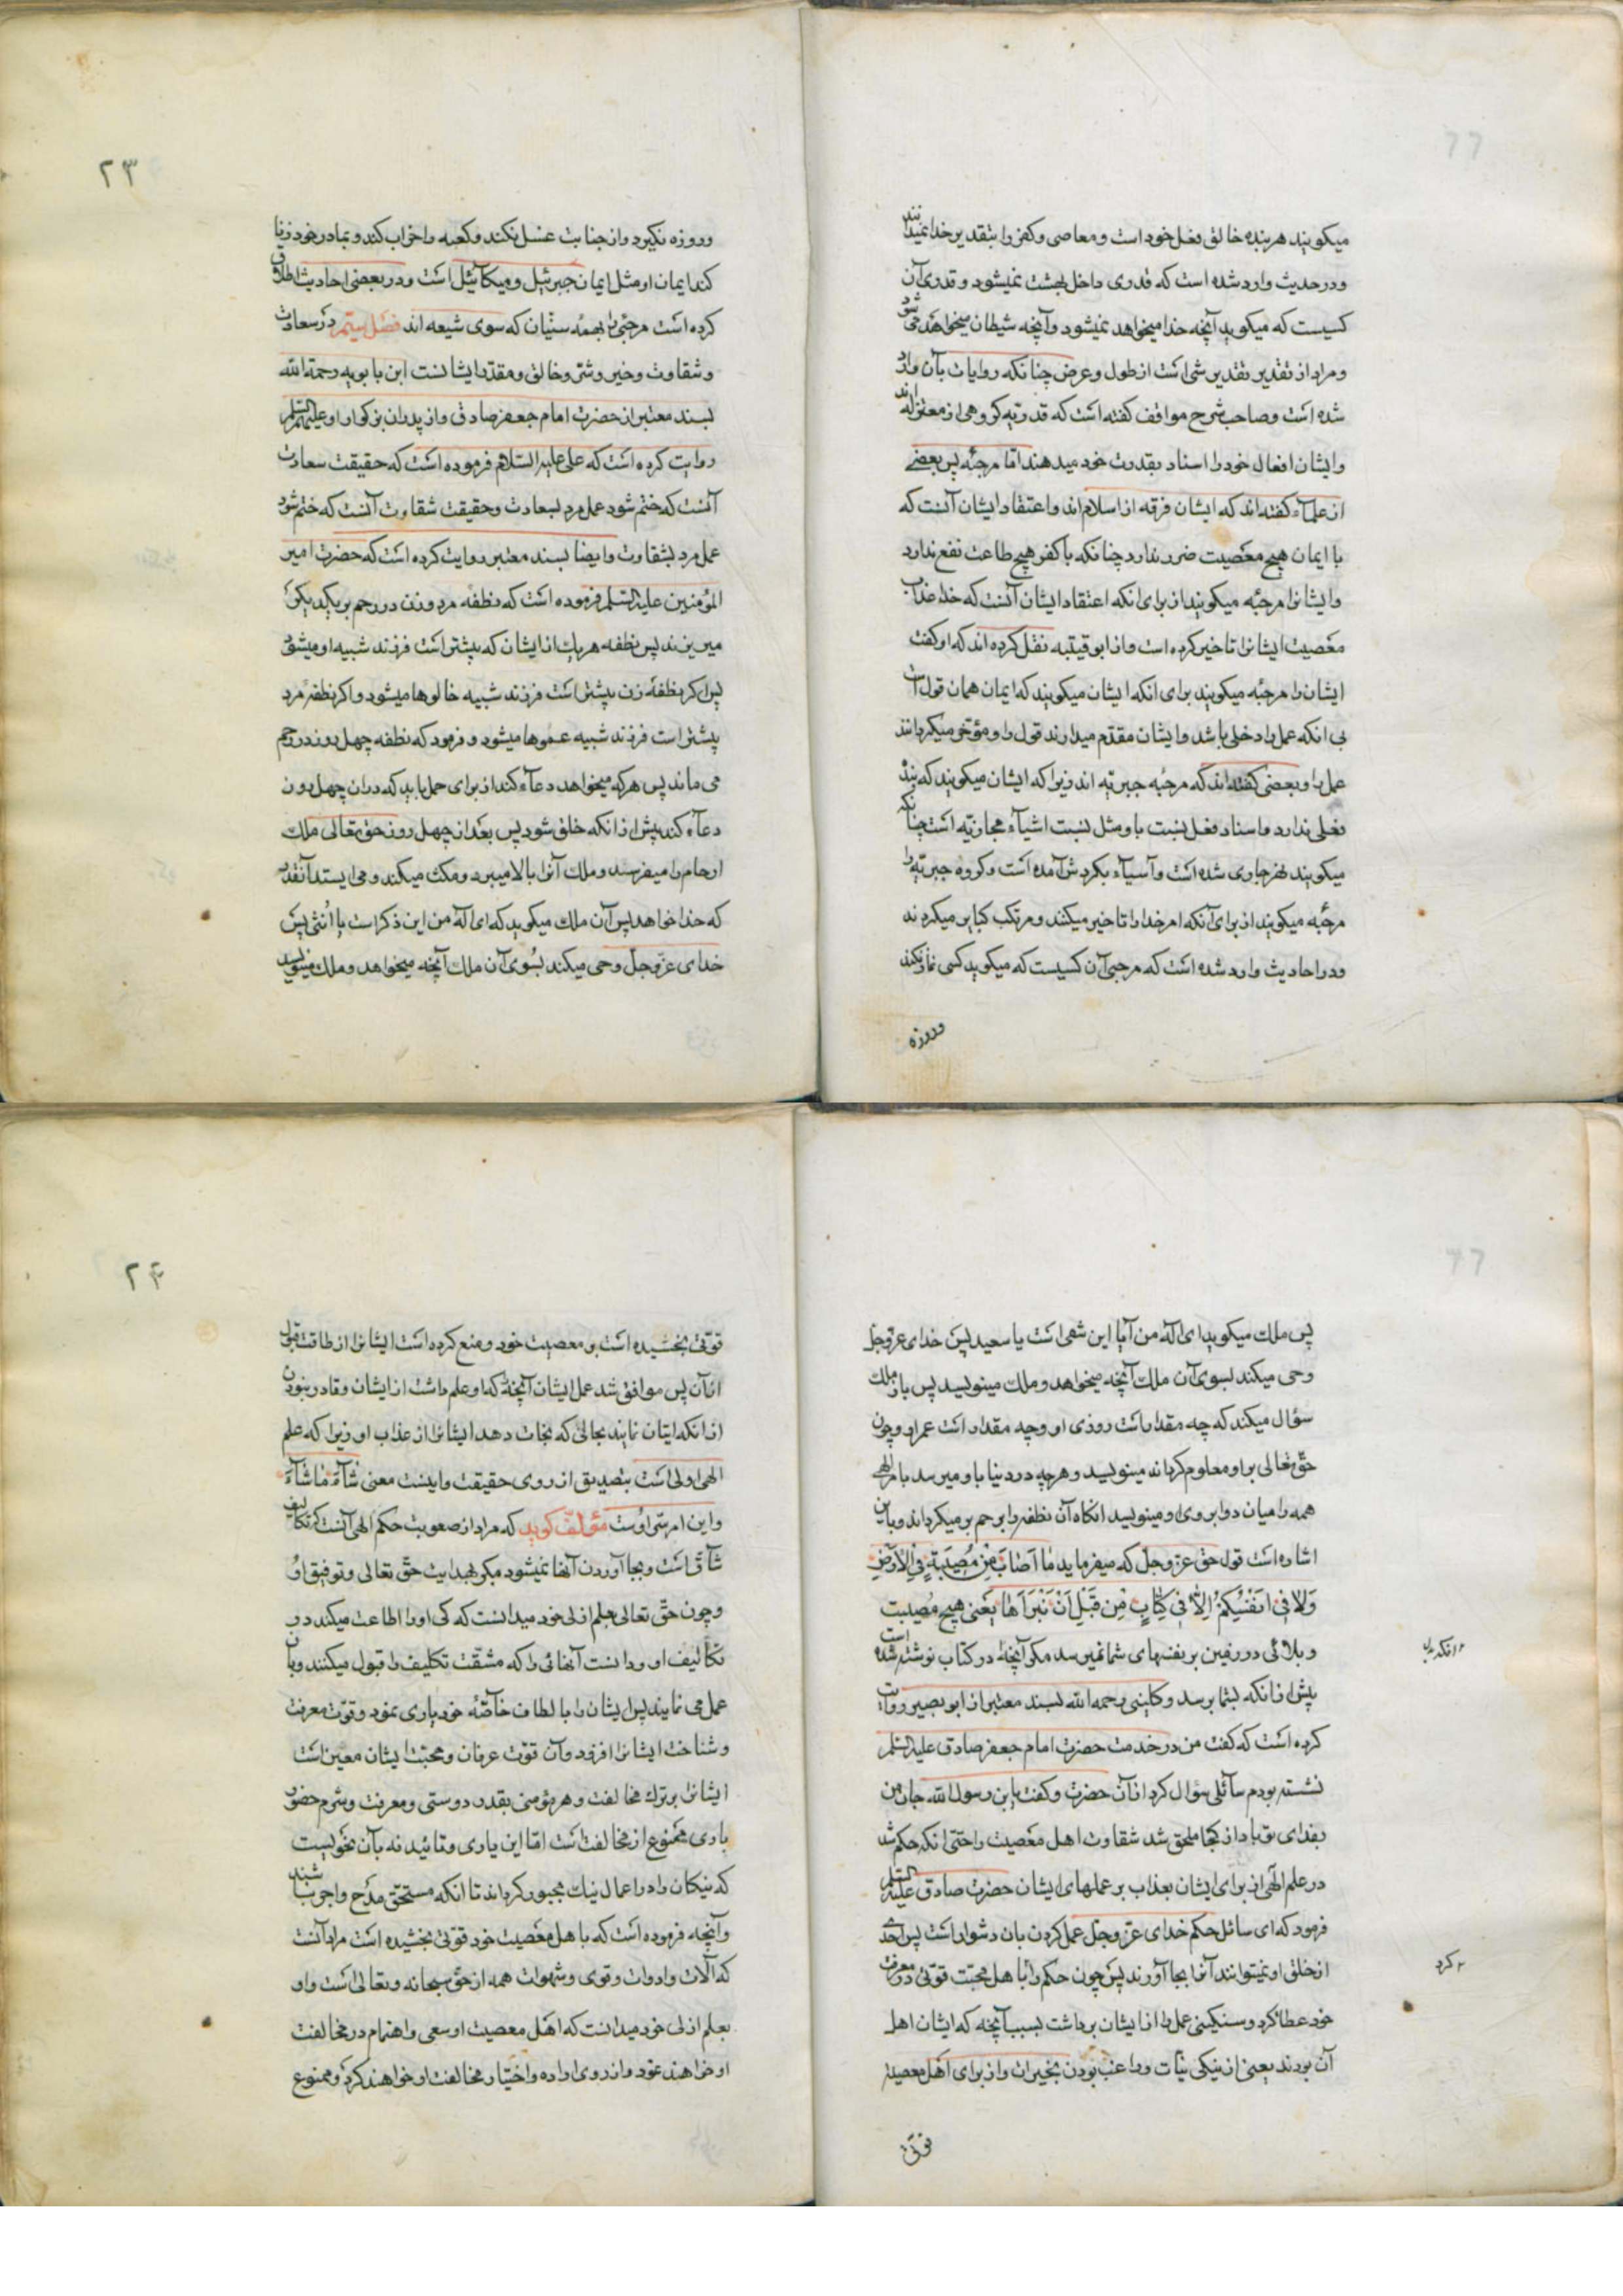 میکویند هر بنده خالق فعل خود است و معاصی و کفر را بتقدیر خدا نمیدانند
و در حدیث وارد شده است که قدری داخل بهشت نمیشود و قدری آن
کسیست که میکوید آنچه خدا میخواهد نمیشود و آنچه شیطان میخواهد می شود
و مراد از تقدیر تقدیر شی است از طول و عرض چنانکه روایات بآن وارد
شده است و صاحب شرح مواقف کفته است که قدریه کروهی از معتزله اند
و ایشان افعال خود را اسناد بقدرت خود میدهند اما مرجئه پس بعضی
از علمآء کفته اند که ایشان فرقه از اسلام اند و اعتقاد ایشان آنست که
با ایمان هیچ معصیت ضرر ندارد چنانکه با کفر هیچ طاعت نفع ندارد
و ایشانرا مرجئه میکویند از برای انکه اعتقاد ایشان آنست که خدا عذاب
معصیت ایشانرا تاخیر کرده است و از ابو قیتبه نقل کرده اند که او کفت
ایشان را مرجئه میکویند برای انکه ایشان میکویند که ایمان همان قول است
بی انکه عمل را دخلی باشد و ایشان مقدم میدارند قول را و مؤخر میکردانند
عمل را و بعضی کفته اند که مرجئه جبریه اند زیرا که ایشان میکویند که بنده
فعلی ندارد و اسناد فعل نسبت باو مثل نسبت اشیآء مجازیه است چنانکه
میکویند نهر جاری شده است و آسیآء بکردش آمده است و کروه جبریه را
مرجئه میکویند از برای آنکه امر خدا را تاخیر میکنند و مرتکب کبایر میکردند
و در احادیث وارد شده است که مرجی آن کسیست که میکوید کسی نماز نکند
وروزه
۲۳
و روزه نکیرد و از جنابت غسل نکند و کعبه را خراب کند و بمادر خود زنا
کند ایمان او مثل ایمان جبرئیل و میکائیل است و در بعضی احادیث اطلاق
کرده است مرجئی را بهمهٔ سنّیان که سوی شیعه اند فصل ستم در سعادت
و شقاوت و خیر و شر و خالق و مقدر ایشانست ابن بابویه رحمة الله
بسند معتبر از حضرت امام جعفر صادق و از پدران بزرکوار او علیهم السلم
روایت کرده است که علی علیه السلام فرموده است که حقیقت سعادت
آنست که ختم شود عمل مرد بسعادت و حقیقت شقاوت آنست که ختم شود
عمل مرد بشقاوت و ایضا بسند معتبر روایت کرده است که حضرت امیر
المؤمنین علیه السلم فرموده است که نطفه مرد و زن در رحم بر یکدیکر
میریزند پس نطفه هر یک از ایشان که پیشتر است فرزند شبیه او میشود
پس اکر نطفهٔ زن پیشتر است فرزند شبیه خالوها میشود و اکر نطفهٔ مرد
پیشتر است فرزند شبیه عموها میشود و فرمود که نطفه چهل روز در رحم
می ماند پس هر که میخواهد دعآء کند از برای حمل باید که در ان چهل روز
دعآء کند پیش از انکه خلق شود پس بعد از چهل روز حق تعالی ملک
ارحام را میفرسند و ملک آنرا بالا میبرد و مکث میکند و می ایستد آنقدر
که خدا خواهد پس آن ملک میکوید که ای اله من این ذکر است یا اُنثی پس
خدای عز و جل وحی میکند بسُوی آن ملک آنچه میخواهد و ملک مینویسد
پس ملک میکوید ای اله من آیا این شقی است یا سعید پس خدای عز و جل
وحی میکند بسوی آن ملک آنچه میخواهد و ملک مینویسد پس باز ملک
سؤال میکند که چه مقدار است روزی او و چه مقدار است عمر او و چون
حق تعالی بر او معلوم کرداند مینویسد و هر چه در دنیا باو میرسد با مر الهی
همه را میان دو ابروی او مینویسد انکاه آن نطفه را برحم بر میکرداند و باین
اشاره است قول حق عز و جل که میفرماید مٰا اَصٰابَ مِنْ مُصیبَةٍ فِی الْاَرْضِ
وَلاٰ فی اَنْفُسِکُمْ اِلاّٰ فی کِتٰابٍ مِنْ قَبْلِ اَنْ نَبْرَأَهٰا یعنی هیچ مصیبت
و بلائی در زمین بر نفسهای شما نمیرسد مکر آنچه در کتاب نوشته شده است
پیش از انکه بشما برسد و کلینی رحمه الله بسند معتبر از ابو بصیر روایت
کرده است که کفت من در خدمت حضرت امام جعفر صادق علیه السلم
نشسته بودم سائلی سؤال کرد از آن حضرت و کفت یا بن رسول الله جان من
بفدای تو باد از کجا ملحق شد شقاوت اهل معصیت را حتی انکه حکم شد
در علم الهی از برای ایشان بعذاب بر عملهای ایشان حضرت صادق علیه السلم
فرمود که ای سائل حکم خدای عز و جل عمل کردن بان دشوار است پس احدی
از خلق او نمیتوانند آنرا بجا آورند پس چون حکم را با هل محبت قوتی در معرفت
خود عطا کرد و سنکینی عمل را از ایشان برداشت بسبب آنچه که ایشان اهل
آن بودند یعنی از نیکی نیّات و راغب بودن بخیرات و از برای اهل معصیت
قوّتی
۲۴
قوّتی بخشیده است بر معصیت خود و منع کرده است ایشانرا از طاقت قبول
از آن پس موافق شد عمل ایشان آنچه که او علم داشت از ایشان و قادر نبودن
از انکه ایتان نمایند بحالی که نجات دهد ایشانرا از عذاب او زیرا که علم
الهی اولی است بتصدیق از روی حقیقت و اینست معنی شٰآءَ مٰا شٰآءَ
و این امر سر اوست مؤلف کوید که مراد از صعوبت حکم الهی آنست که تکالیف
شاق است و بجا آوردن آنها نمیشود مکر بهدایت حق تعالی و توفیق او
و چون حق تعالی بعلم ازلی خود میدانست که کی او را اطاعت میکند در
تکالیف او و دانست آنهائی را که مشقت تکلیف را قبول میکنند و بآن
عمل می نمایند پس ایشان را با لطاف خاصّهٔ خود یاری نمود و قوّت معرفت
و شناخت ایشانرا افزود و آن قوت عرفان و محبّت ایشان معین است
ایشانرا بر ترک مخالفت و هر مؤمنی بقدر دوستی و معرفت و شرم حضور
باری ممنوع از مخالفت است امّا این یاری و تائید نه بآن نحویست
که نیکان را در اعمال نیک مجبور کرداند تا انکه مستحق مدح و اجر نباشند
و آنچه فرموده است که با هل معصیت خود قوتی بخشیده است مراد آنست
که آلات و ادوات و قوی و شهوات همه از حق سبحانه و تعالی است و او
بعلم ازلی خود میدانست که اهل معصیت او سعی و اهتمام در مخالفت
او خواهند نمود و از روی اراده و اختیار مخالفت او خواهند کرد و ممنوع